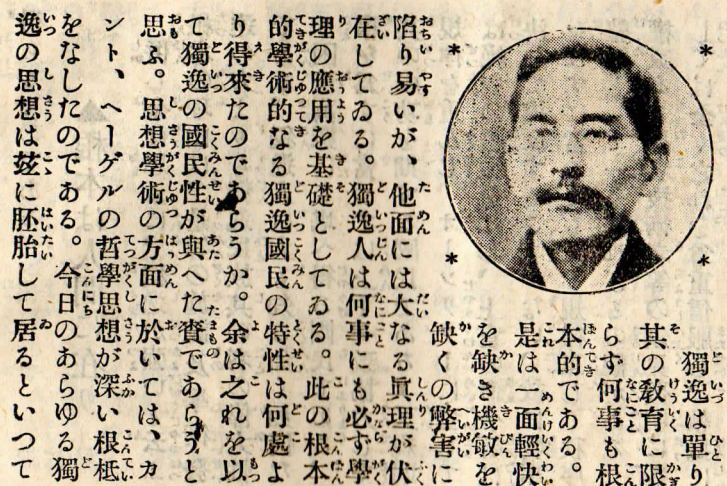 獨逸は單り
其の敎育に限
らず何事も根
本的である。
是は一面輕快
を缺き機敏を
缺くの弊害に
陷り易いが、他面には大なる眞理が伏
在してゐる。獨逸人は何事にも必ず學
理の應用を基礎としてゐる。此の根本
的學術的なる獨逸國民の特性は何處よ
り得來たのであらうか。余は之れを以
て獨逸の國民性が與へた賚であらうと
思ふ。思想學術の方面に於いては、カ
ント、ヘーゲルの哲學思想が深い根柢
をなしたのである。今日のあらゆる獨
逸の思想は玆に胚胎して居るといつて